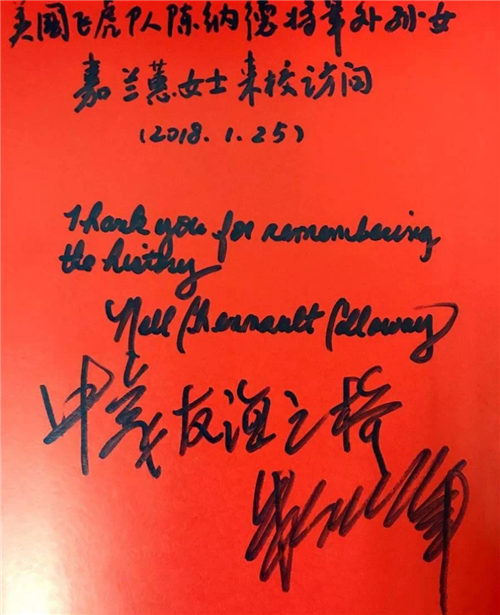 美国飞虎队陈纳德将军外孙女
嘉兰蕙女士来校访问
(2018.1.25)
Thank you for remembering
the history
Nell Chennault Calloway
中美友谊之桥